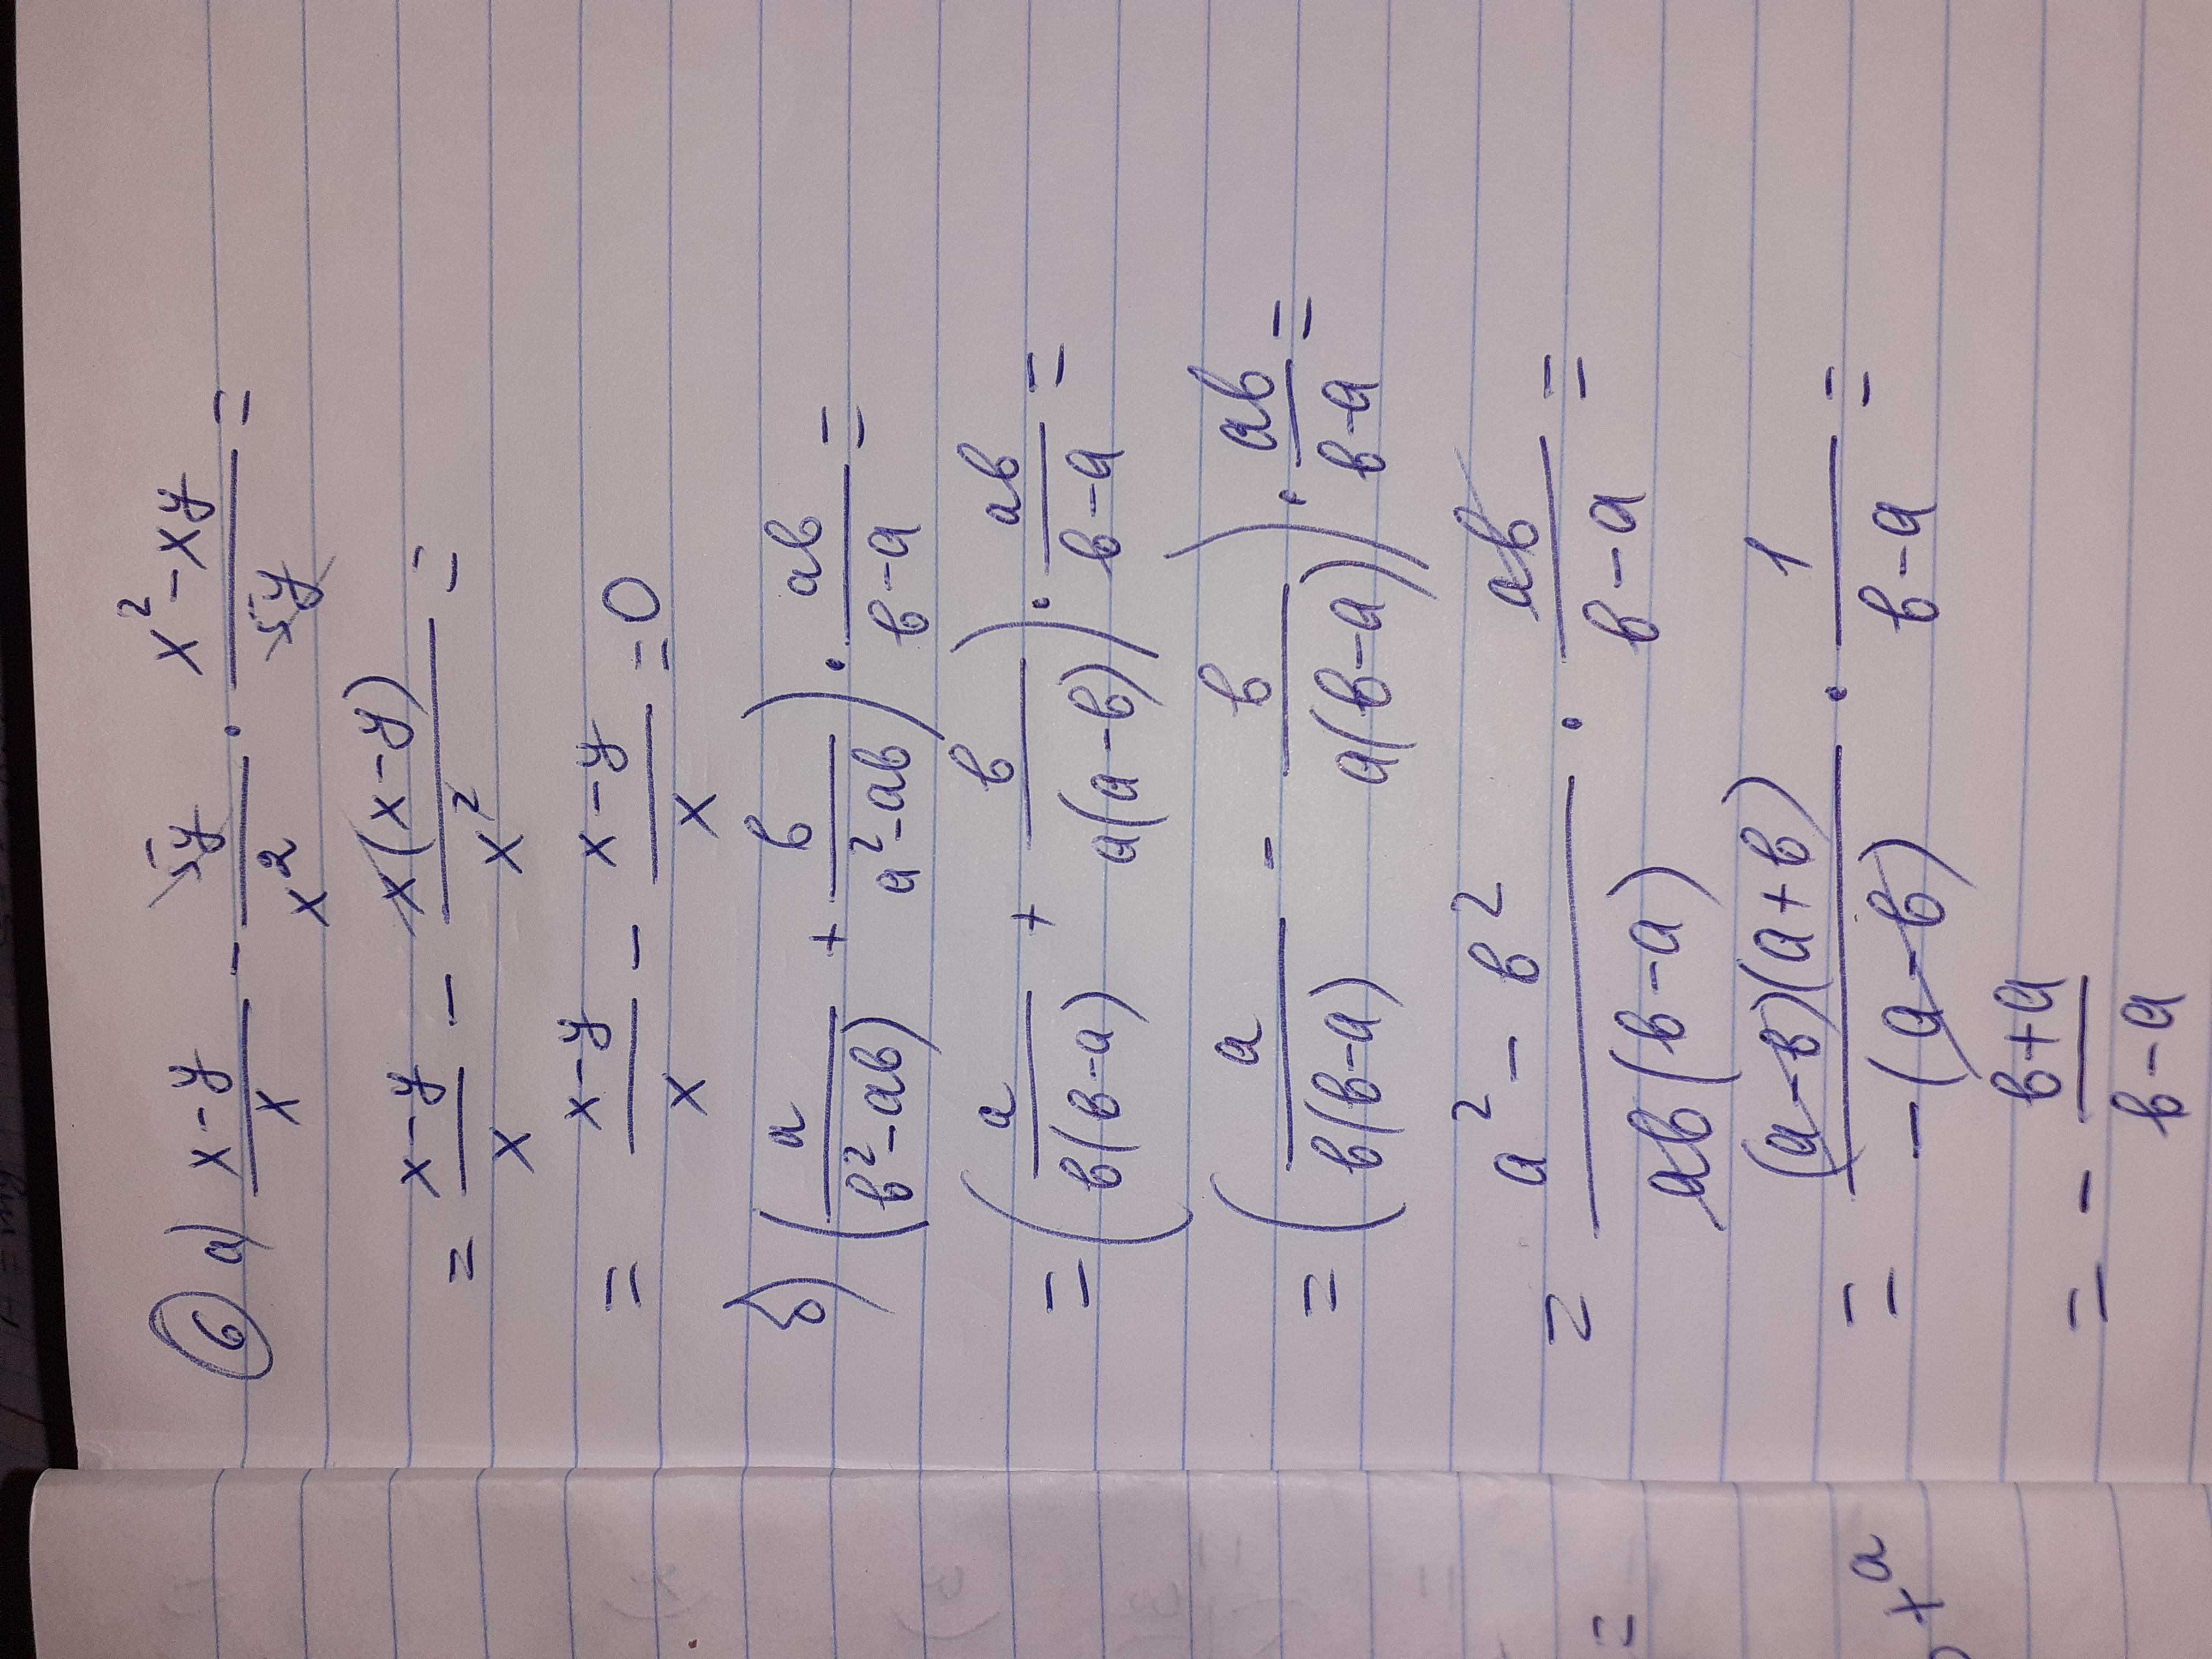 6 а) (x-y)/x - 5y/x² · (x²-xy)/5y =
= (x-y)/x - x(x-y)/x² =
= (x-y)/x - (x-y)/x = 0
б) (a/(b²-ab) + b/(a²-ab)) · ab/(b-a) =
= (a/(b(b-a)) + b/(a(a-b))) · ab/(b-a) =
= (a/(b(b-a)) - b/(a(b-a))) · ab/(b-a) =
= (a²-b²)/(ab(b-a)) · ab/(b-a) =
= (a-b)(a+b)/(-(a-b)) · 1/(b-a) =
= - (b+a)/(b-a)
=